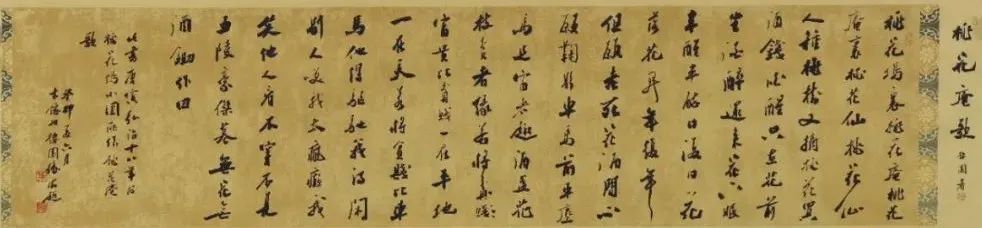 桃花庵歌
桃花塢裏桃花庵桃花
庵裏桃花仙桃花仙
人種桃樹又摘桃花買
酒錢酒醒只在花前
坐酒醉還來花下眠
半醒半醉日復日花
落花開年復年
但願老死花酒間不
願鞠躬車馬前車塵
馬足富者趣酒盞花
枝貧者緣若將
富貴比貧賤一在平地
一在天若將貧賤比車
馬他得驅馳我得閑
别人笑我太瘋癲我
笑他人看不穿不見
五陵豪傑墓無花無
酒鋤作田
唐寅弘治十八年
桃花塢小園桃花庵
歌
癸卯年六月